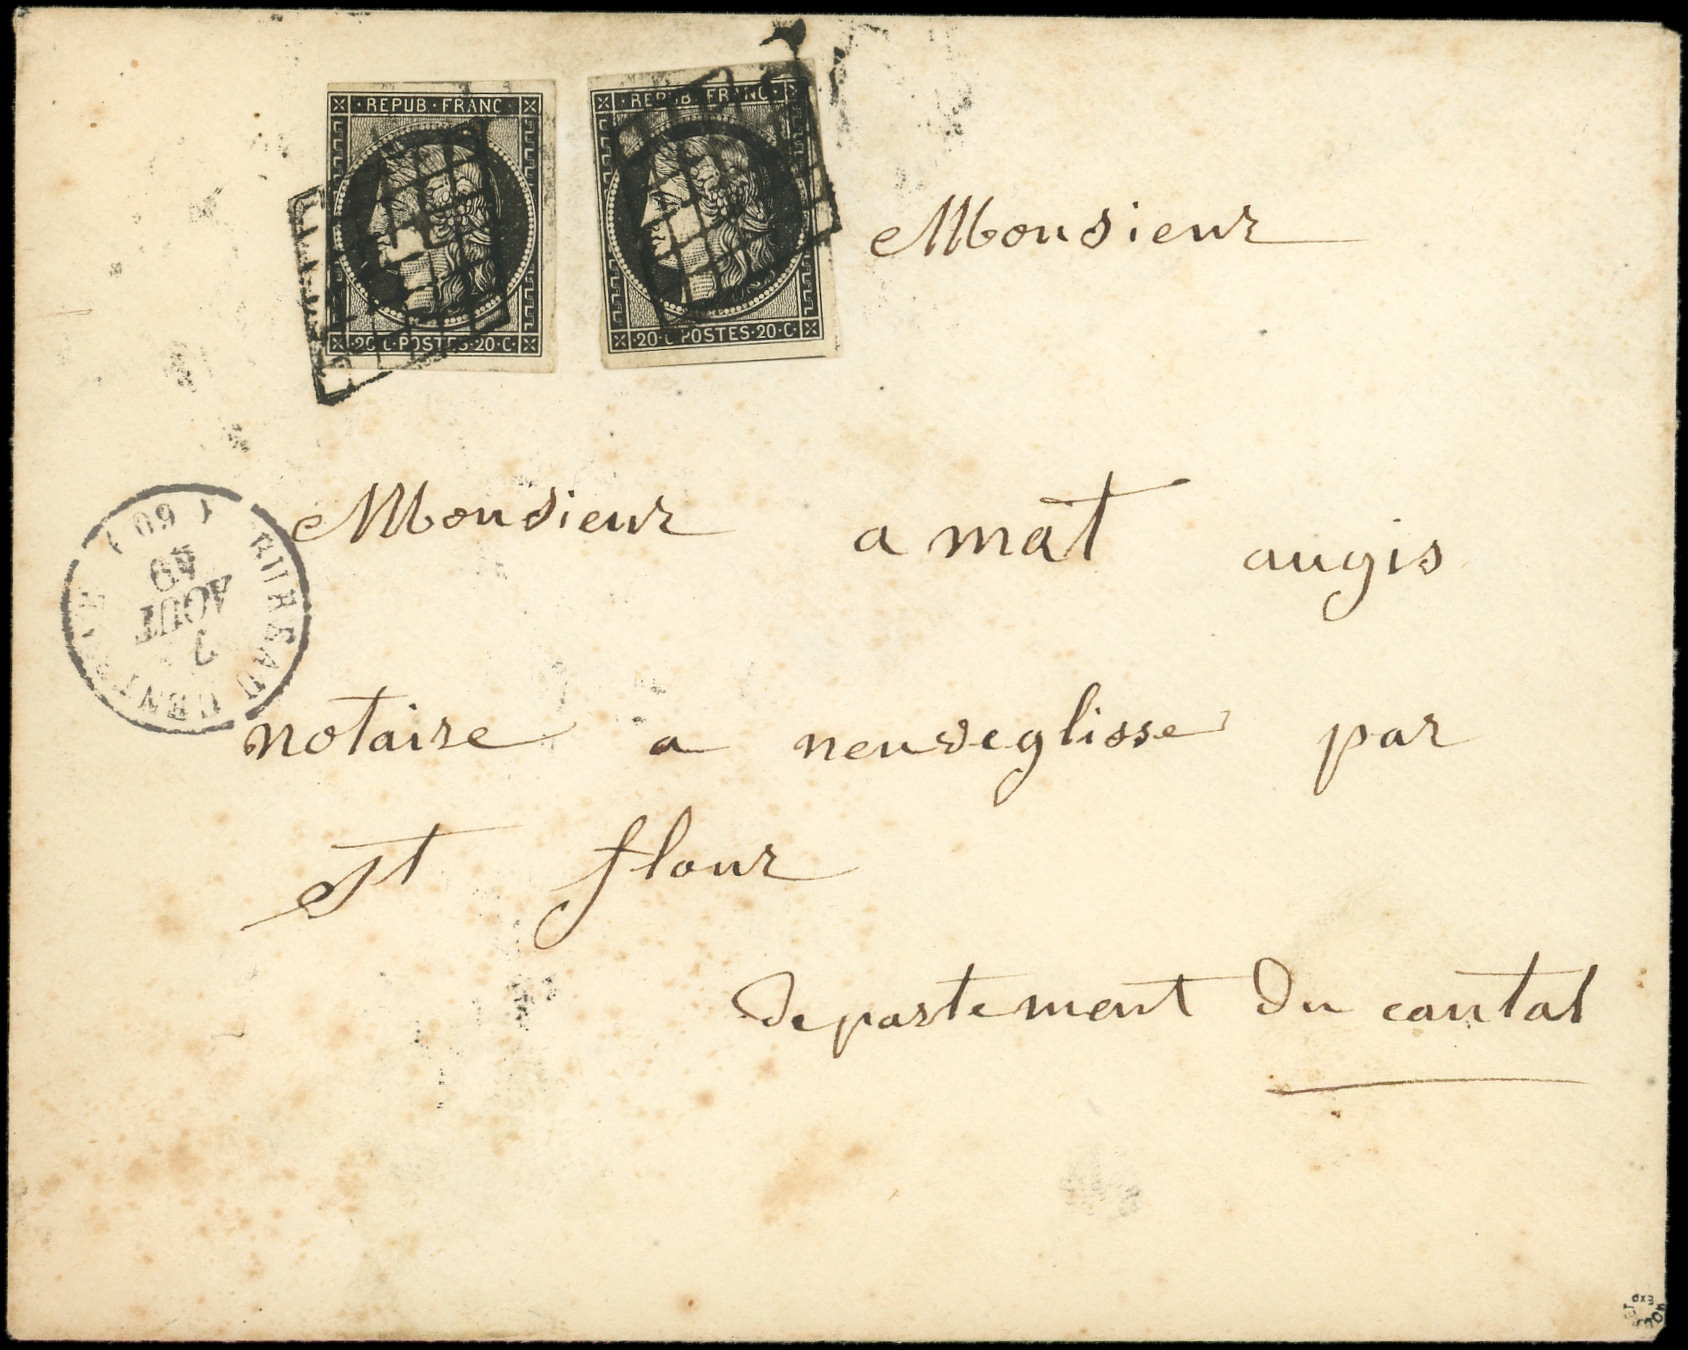 REPUB·FRANC
20·C·POSTES·20·C·
REPUB·FRANC
20·C·POSTES·20·C·
Monsieur
Monsieur amat augis
notaire a neuveglisse par
st flour
departement du cantal
BUREAU CENTRAL
7
AOUT
49
(60)